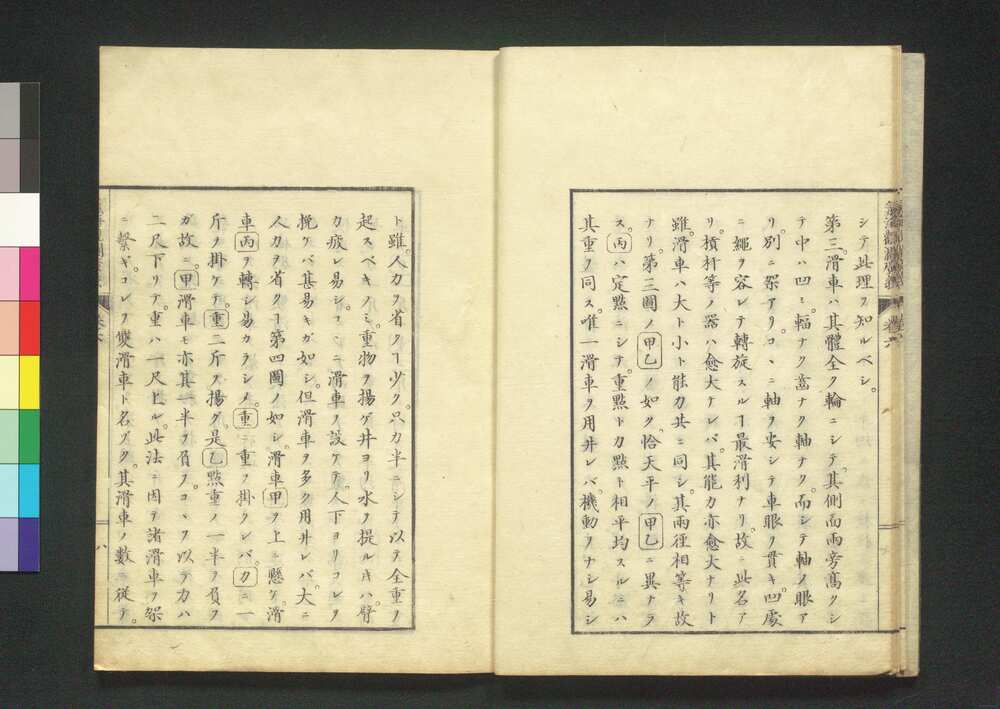 シテ此理ヲ知ルベシ。
第三滑車ハ其體全ク輪ニシテ。其側面兩旁高クシ
テ中ハ凹ミ。輻ナク齒ナク軸ナク。而シテ軸ノ眼ア
リ別ニ架アリ。コヽニ軸ヲ安シテ車眼ヲ貫キ。凹處
ニ繩ヲ容レテ轉旋スルヿ最滑利ナリ。故ニ此名ア
リ。槓杆等ノ器ハ愈大ナレバ。其能力亦愈大ナリト
雖。滑車ハ大ト小ト能力其ニ同シ。其兩徑相等キ故
ナリ。第三圖ノ甲乙ノ如ク。恰天平ノ甲乙ニ異ナラ
ス。丙ハ定點ニシテ。重點ト力點ト相平均スルニハ
其重ヲ同ス。唯一滑車ヲ用井レバ機動ヲナシ易シ
ト雖。人力ヲ省クヿ少ク。只力半ニシテ以テ全重ヲ
起スベキノミ。重物ヲ揚ゲ井ヨリ水ヲ提ルキハ。臂
力疲レ易シ。コヽニ滑車ヲ設ケテ。人下ヨリコレヲ
挽ケバ甚易キガ如シ。但滑車ヲ多ク用井レバ。大ニ
人力ヲ省クヿ第四圖ノ如シ。滑車甲ヲ上ニ懸ケ。滑
車丙ヲ轉シ易カラシメ。重ニ重ヲ掛クレバ。力ニ一
斤ヲ掛ケテ。重二斤ヲ揚グ。是乙點重ノ一半ヲ負フ
ガ故ニ。甲滑車モ亦其一半ヲ負フ。コヽヲ以テ力ハ
二尺下リテ。重ハ一尺上ル。此法ニ因テ諸滑車ヲ架
ニ繫ギ。コレヲ雙滑車ト名ヅク。其滑車ノ數ニ從テ。
八